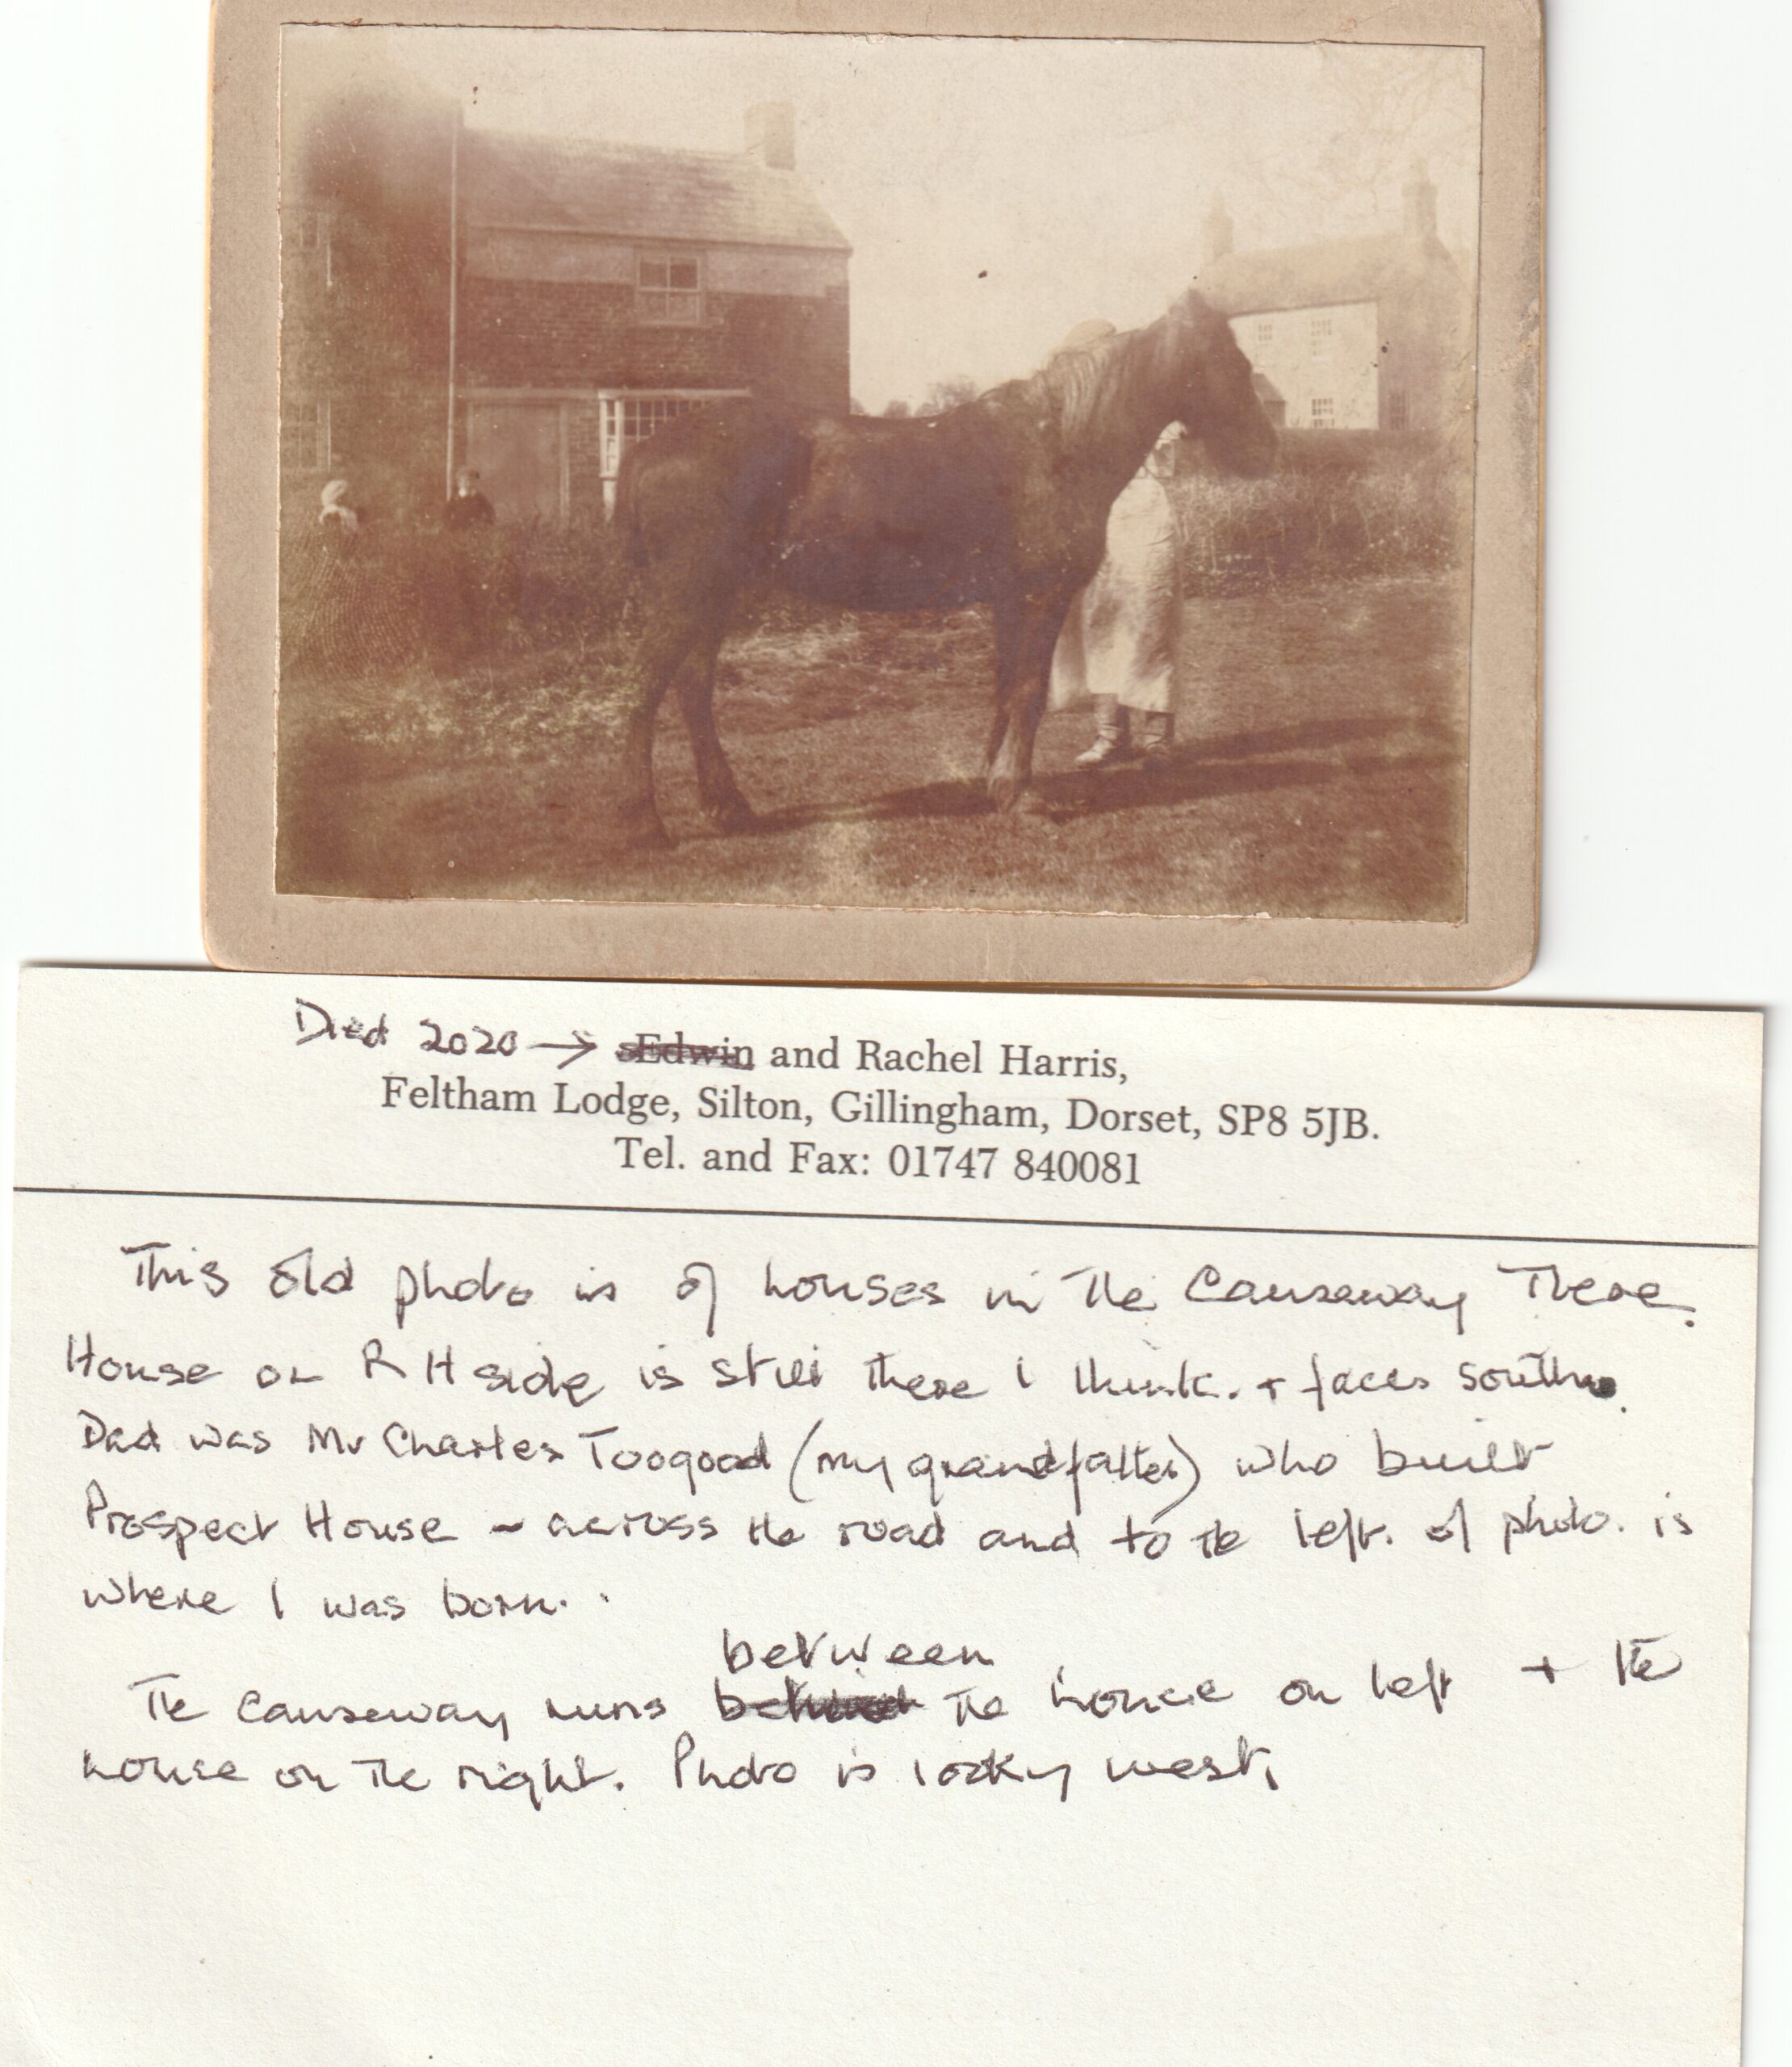 Died 2020 → Edwin and Rachel Harris,
Feltham Lodge, Silton, Gillingham, Dorset, SP8 5JB.
Tel. and Fax: 01747 840081
This old photo is of houses in the Causeway There.
House on R H side is still there I think. + faces south.
Dad was Mr Charles Toogood (my grandfather) who built
Prospect House - across the road and to the left. of photo. is
where I was born.
between
The Causeway runs behind the house on left + the
house on the right. Photo is looking west,